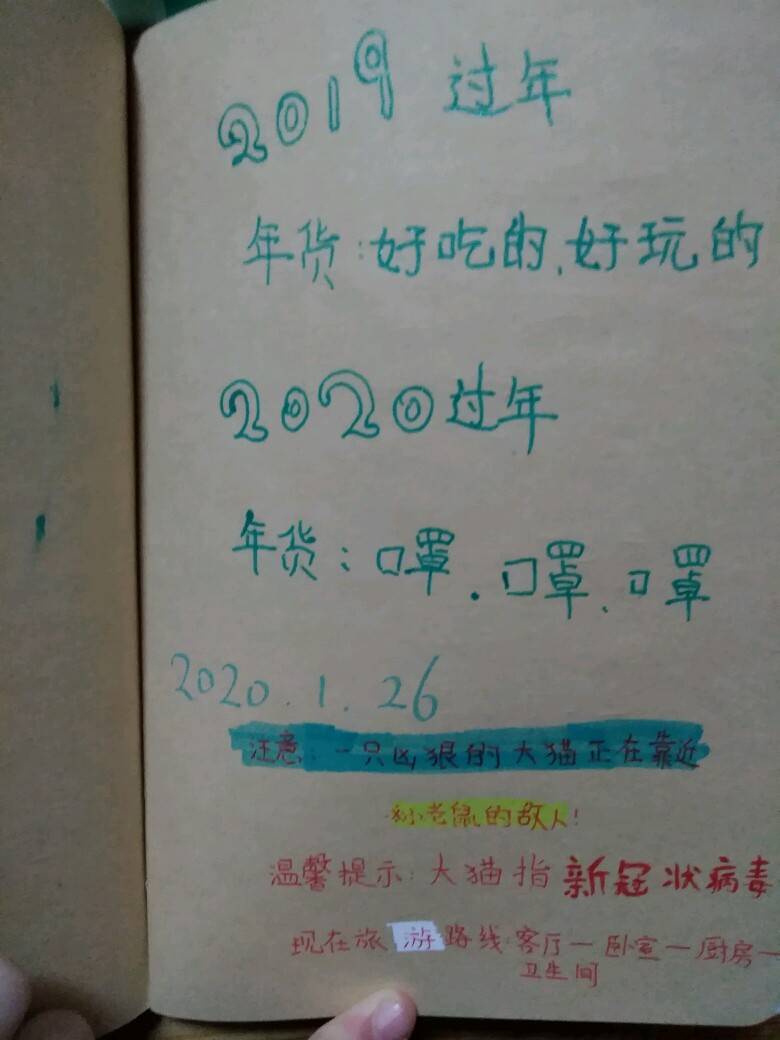 2019 过年
年货:好吃的、好玩的
2020过年
年货:口罩.口罩、口罩
2020.1.26
注意:一只凶狠的大猫正在靠近
小老鼠的敌人!
温馨提示:大猫指新冠状病毒
现在旅游路线:客厅一卧室一厨房一
卫生间